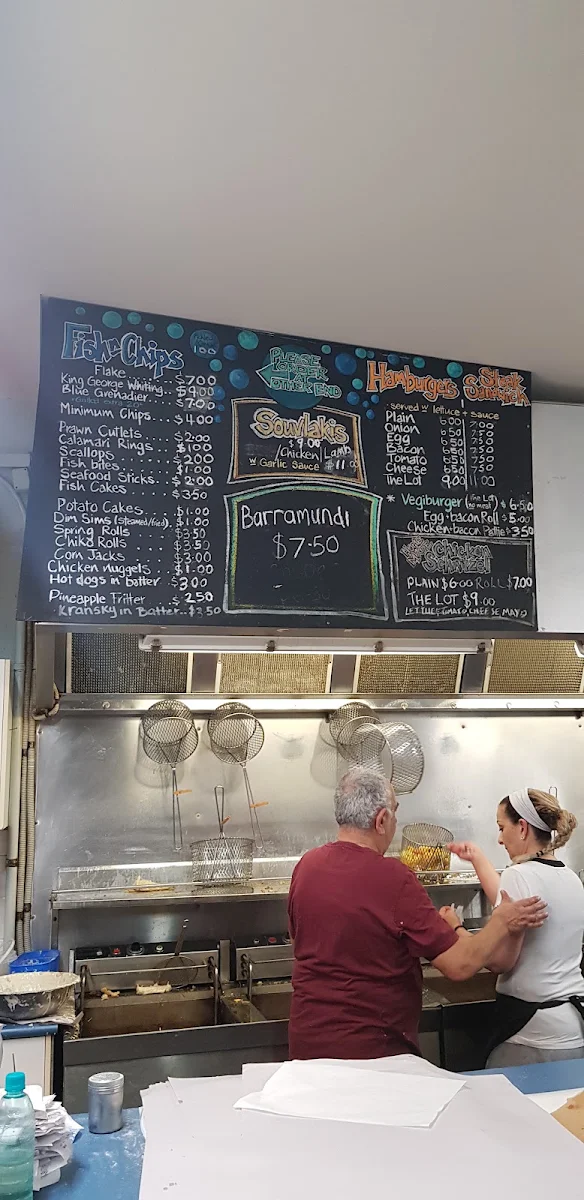 Fish n Chips
Flake . . . $7.00
King George Whiting . . . $9.00
Blue Grenadier . . . $7.00
Minimum Chips . . . $4.00
Prawn Cutlets . . . $2.00
Calamari Rings . . . $1.00
Scallops . . . $2.00
Fish bites . . . $1.00
Seafood Sticks . . $2.00
Fish Cakes . . . $3.50
Potato Cakes . . . $1.00
Dim Sims (steamed/fried) . . $1.00
Spring Rolls . . . $3.50
Chiko Rolls . . . $3.50
Corn Jacks . . . $3.00
Chicken nuggets . . $1.00
Hot dogs in batter . . $3.00
Pineapple Fritter . . . $2.50
Kransky in Batter . . $3.50
PLEASE
ORDER
@
OTHER END
Souvlakis
$9.00
/Chicken/Lamb
w Garlic Sauce $11.00
Barramundi
$7.50
Hamburgers Steak Sandwich
served w lettuce + sauce
Plain 6.00 7.00
Onion 6.50 7.50
Egg 6.50 7.50
Bacon 6.50 7.50
Tomato 6.50 7.50
Cheese 6.50 7.50
The Lot 9.00 11.00
* Vegiburger (the Lot no meat) $6.50
Egg+bacon Roll $5.00
Chicken+bacon Pattie $3.50
Chicken Schnitzel
PLAIN $6.00 ROLL $7.00
THE LOT $9.00
LETTUCE TOMATO CHEESE MAYO